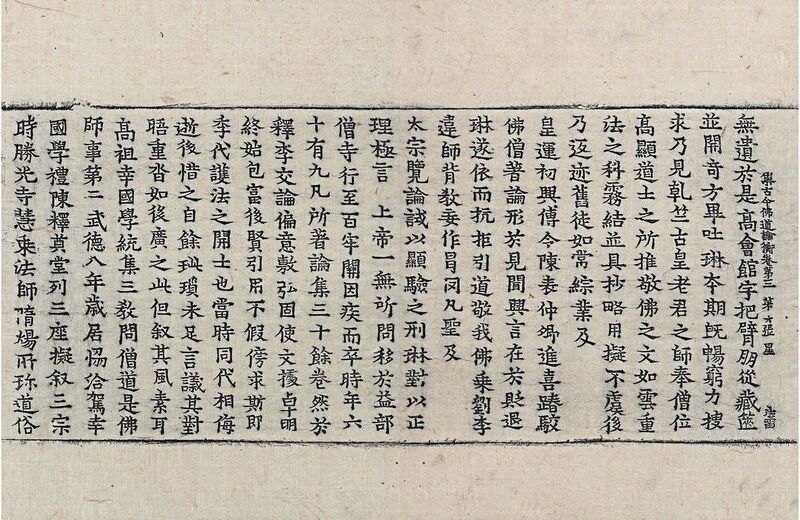 無遺於是高會館宇把臂朋從藏篋
集古今佛道論衡卷第三 第六張 星
並開奇方畢吐琳本期既暢窮力搜
求乃見乹竺古皇老君之師奉僧位
高顯道士之所推敬佛之文如雲重
法之科霧結並具抄略用擬不虞後
乃返迹舊徒如常綜業及
皇運初興傅令陳表仲卿進喜踳駮
佛僧著論形於見聞興言在於貶退
琳遂依而抗拒引道敬我佛乘劉李
違師背教委作冐罔凡聖及
太宗覽論試以顯驗之刑琳對以正
理極言 上帝一無所問移於益部
僧寺行至百牢關因疾而卒時年六
十有九凡所著論集三十餘卷然於
釋李交論偏意敷弘固使文據卓明
終始包富後賢引用不假傍求斯即
季代護法之開士也當時同代相侮
逝後惜之自餘玼瑣未足言議其對
晤重沓如後廣之此但叙其風素耳
高祖幸國學統集三教問僧道是佛
師事第二武德八年歲居協洽駕幸
國學禮陳釋奠堂列三座擬叙三宗
時勝光寺慧乘法師隋煬所珎道俗